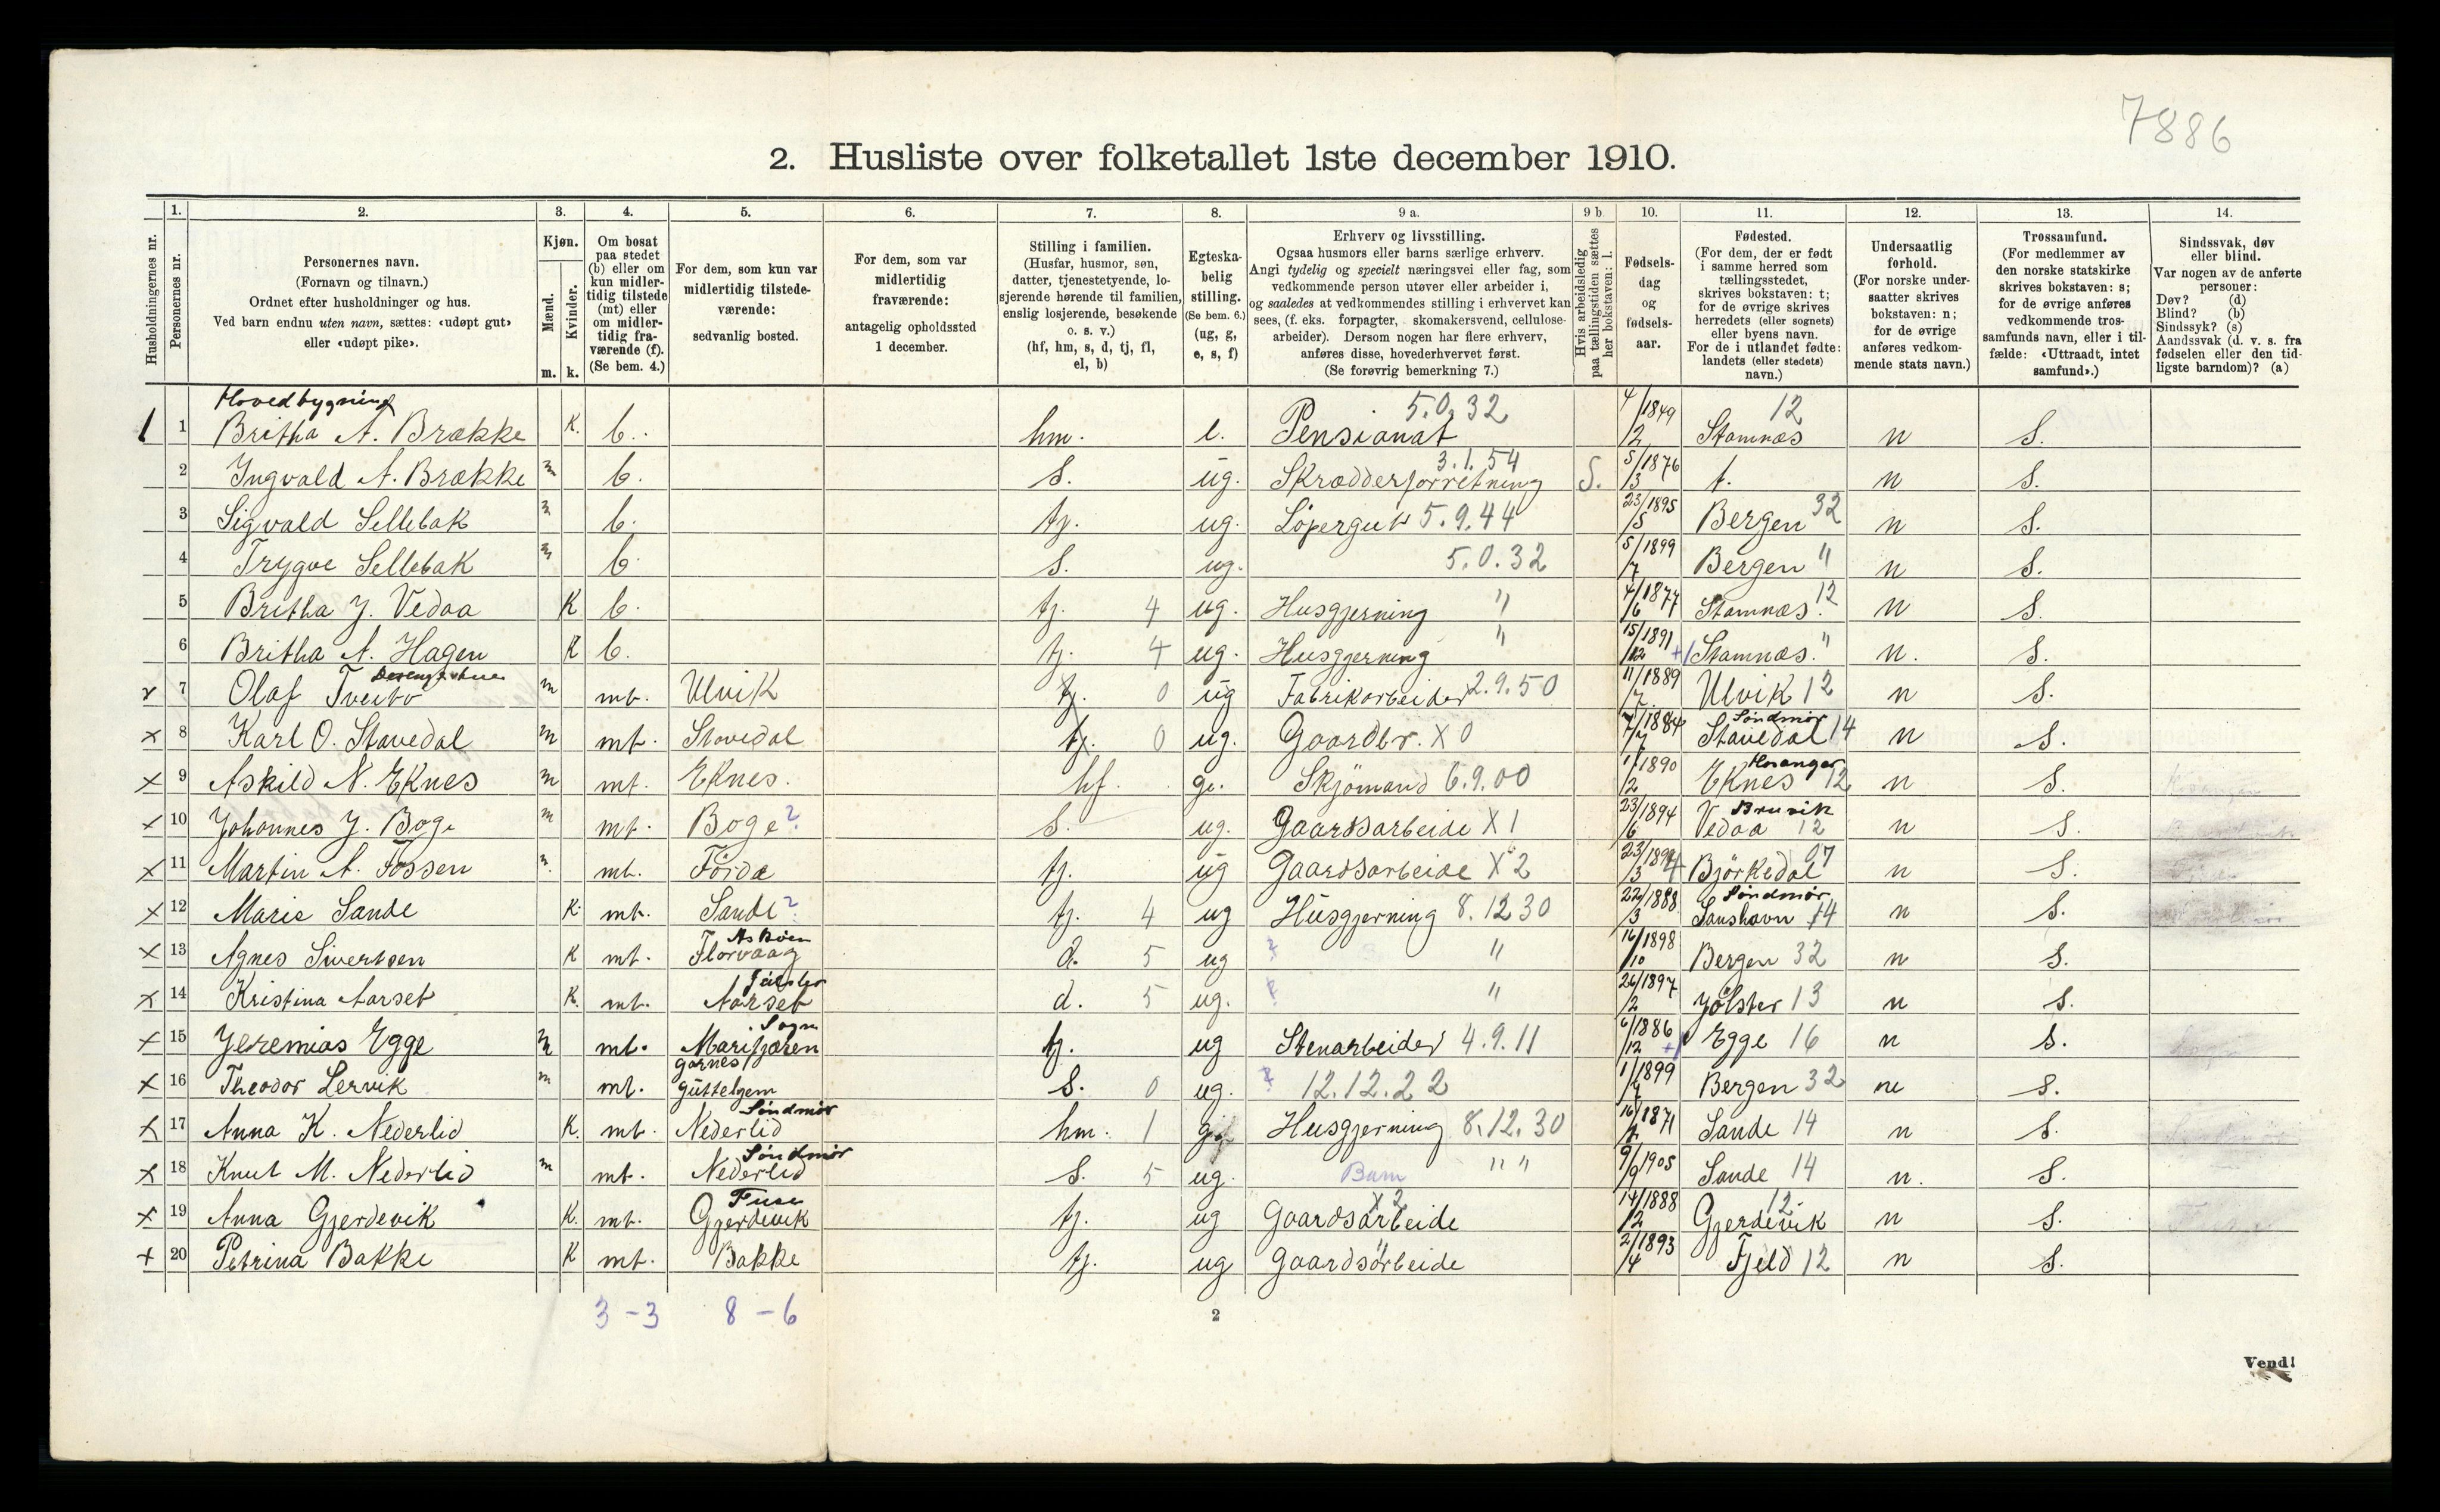 7886
2. Husliste over folketallet 1ste december 1910.
Husholdningernes nr.
1. Personernes nr.
2. Personernes navn. (Fornavn og tilnavn.) Ordnet efter husholdninger og hus. Ved barn endnu uten navn, sættes: «udøpt gut» eller «udøpt pike».
3. Kjøn. Mænd. m. Kvinder. k.
4. Om bosat paa stedet (b) eller om kun midlertidig tilstede (mt) eller om midlertidig fraværende (f). (Se bem. 4.)
5. For dem, som kun var midlertidig tilstedeværende: sedvanlig bosted.
6. For dem, som var midlertidig fraværende: antagelig opholdssted 1 december.
7. Stilling i familien. (Husfar, husmor, søn, datter, tjenestetyende, losjerende hørende til familien, enslig losjerende, besøkende o. s. v.) (hf, hm, s, d, tj, fl, el, b)
8. Egteskabelig stilling. (Se bem. 6.) (ug, g, e, s, f)
9 a. Erhverv og livsstilling. Ogsaa husmors eller barns særlige erhverv. Angi tydelig og specielt næringsvei eller fag, som vedkommende person utøver eller arbeider i, og saaledes at vedkommendes stilling i erhvervet kan sees, (f. eks. forpagter, skomakersvend, cellulosearbeider). Dersom nogen har flere erhverv, anføres disse, hovederhvervet først. (Se forøvrig bemerkning 7.)
9 b. Hvis arbeidsledig paa tællingstiden sættes her bokstaven: l.
10. Fødselsdag og fødselsaar.
11. Fødested. (For dem, der er født i samme herred som tællingsstedet, skrives bokstaven: t; for de øvrige skrives herredets (eller sognets) eller byens navn. For de i utlandet fødte: landets (eller stedets) navn.)
12. Undersaatlig forhold. (For norske undersaatter skrives bokstaven: n; for de øvrige anføres vedkommende stats navn.)
13. Trossamfund. (For medlemmer av den norske statskirke skrives bokstaven: s; for de øvrige anføres vedkommende trossamfunds navn, eller i tilfælde: «Uttraadt, intet samfund».)
14. Sindssvak, døv eller blind. Var nogen av de anførte personer: Døv? (d) Blind? (b) Sindssyk? (s) Aandssvak (d. v. s. fra fødselen eller den tidligste barndom)? (a)
Hovedbygning
1 1 Britha A. Brække K. b. hm. e. Pensionat 5.0.32 4/2 1849 Stamnæs 12 n S.
2 Ingvald A. Brække m b. s. ug. Skrædderforretning 3.1.54 S. 5/3 1876 t. n S.
3 Sigvald Sellebak m b. tj. ug. Löpergut 5.9.44 23/5 1895 Bergen 32 n S.
4 Trygve Sellebak m b. s. ug. 5.0.32 5/7 1899 Bergen " n S.
5 Britha J. Vedaa K b. tj. 4 ug. Husgjerning " 4/6 1877 Stamnæs. 12 n S.
6 Britha A. Hagen K b. tj. 4 ug. Husgjerning " 15/12 1891 Stamnæs. " n. S.
7 Olaf Tveito m mt. Ulvik tj. 0 ug Fabrikarbeider 2.9.50 11/7 1889 Ulvik 12 n S.
x 8 Karl O. Stavedal m mt. Stavedal tj. 0 ug. Gaardbr. X 0 7/7 1884 Stavedal Søndmør 14 n S.
x 9 Askild N. Eknes m mt. Eknes. hf. g. Skjömand 6.9.00 1/2 1890 Eknes Hosanger 12 n S.
x 10 Johannes J. Boge m mt. Boge ? s. ug. Gaardsarbeide X 1 23/6 1894 Vedaa Bruvik 12 n S.
x 11 Martin A. Fossen m. mt. Förde tj. ug Gaardsarbeide X 2 23/3 1894 Björkedal 07 n S.
x 12 Marie Sande K. mt. Sande ? tj. 4 ug Husgjerning 8.12 30 22/3 1888 Lanshavn Søndmør 14 n S.
x 13 Agnes Sivertsen K mt. Florvaag Askøen d. 5 ug ? " 16/10 1898 Bergen 32 n S.
x 14 Kristina Aarset K. mt. Aarset Jølster d. 5 ug. ? " 26/2 1897 Jölster 13 n S.
x 15 Jeremias Egge m mt. Marifjæren Sogn tj. ug Stenarbeider 4.9.11 6/12 1886 Egge 16 n S.
x 16 Theodor Lervik m mt. Garnes Guttehjem s. 0 ug. ? 12.12.22 1899 Bergen 32 n S.
x 17 Anna K. Nederlid K. mt. Nederlid Søndmør hm. 1 g. Husgjerning 8.12.30 16/ 1871 Sande 14 n S.
x 18 Knut M. Nederlid m mt. Nederlid Søndmør s. 5 ug. Barn " " 9/9 1905 Sande 14 n. S.
x 19 Anna Gjerdevik K. mt. Gjerdevik Fuse tj. ug Gaardsarbeide X 2 14/12 1888 Gjerdevik 12 n S.
x 20 Petrina Bakke K mt. Bakke tj. ug Gaardsarbeide " 2/4 1893 Fjeld 12 n S.
3 - 3 8 - 6
2
Vend!